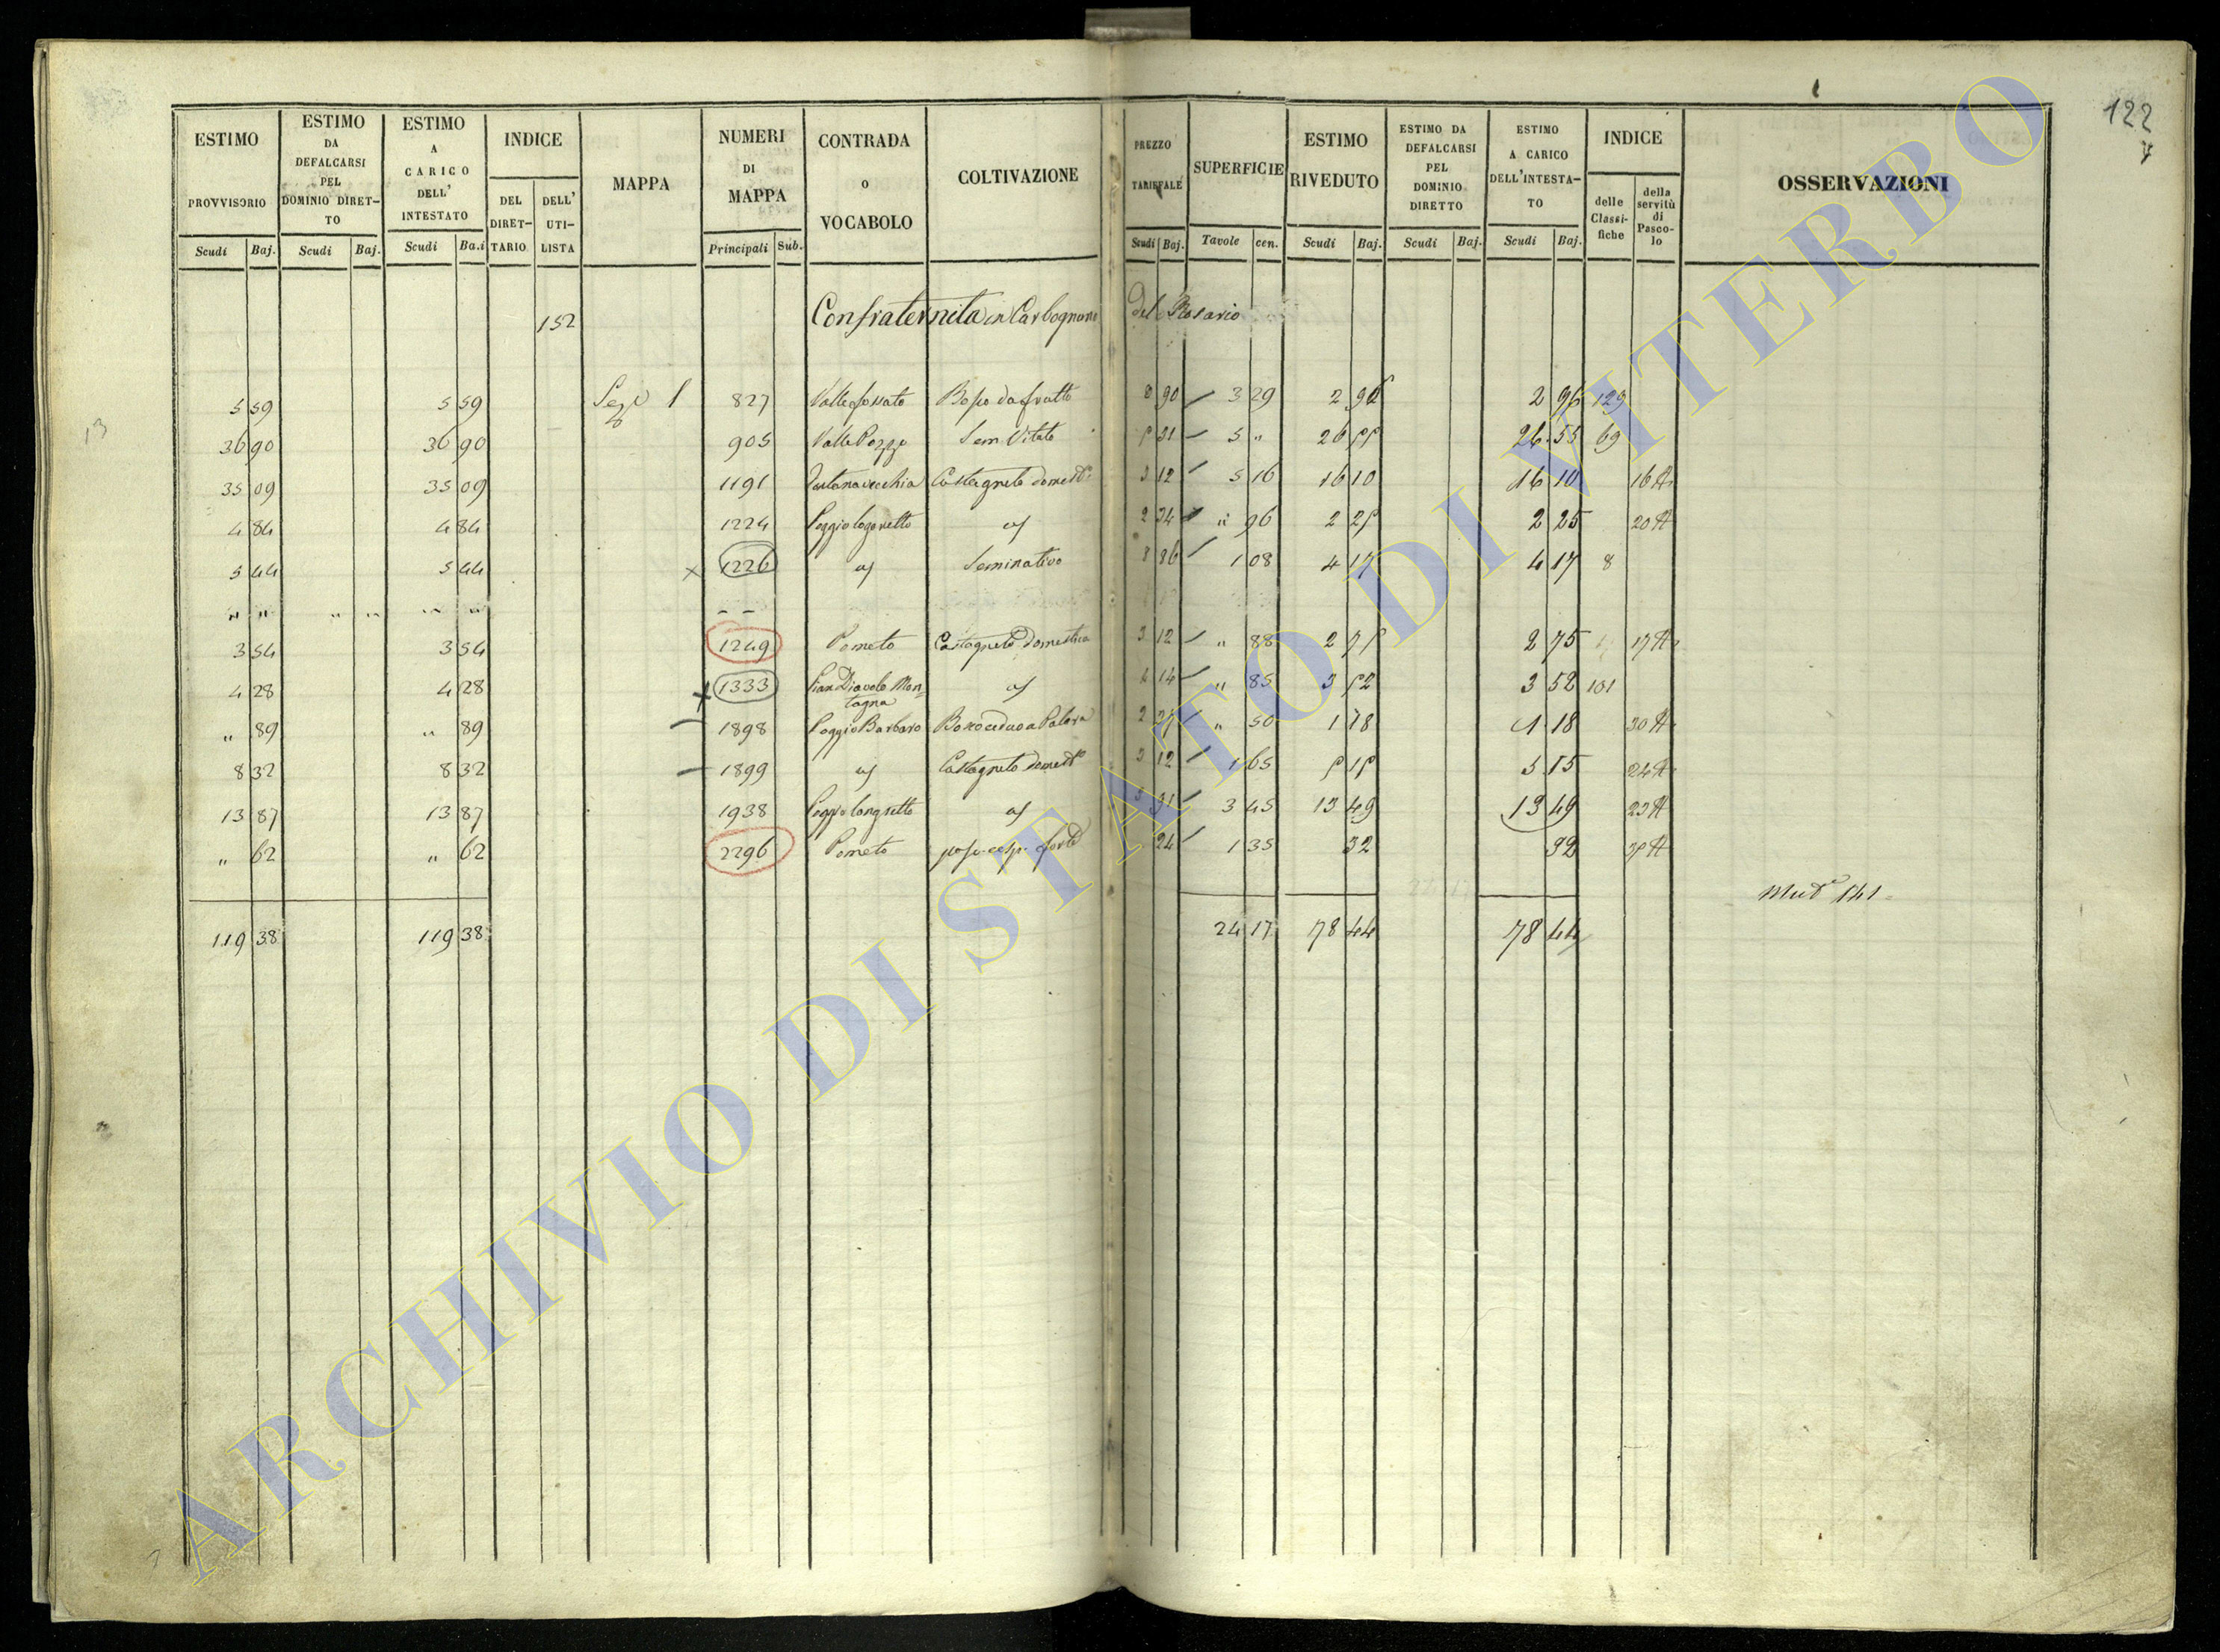 122
7
ESTIMO PROVVISORIO
ESTIMO DA DEFALCARSI PEL DOMINIO DIRET-TO
ESTIMO A CARICO DELL' INTESTATO
INDICE
DEL DIRET-TARIO
DELL' UTI-LISTA
MAPPA
NUMERI DI MAPPA
CONTRADA O VOCABOLO
COLTIVAZIONE
PREZZO TARIFFALE
SUPERFICIE
ESTIMO RIVEDUTO
ESTIMO DA DEFALCARSI PEL DOMINIO DIRETTO
ESTIMO A CARICO DELL'INTESTA-TO
INDICE
delle Classi-fiche
della servitù di Pasco-lo
OSSERVAZIONI
Scudi Baj. Scudi Baj. Scudi Ba.i Principali Sub. Scudi Baj. Tavole cen. Scudi Baj. Scudi Baj. Scudi Baj.
152 Confraternita in Carbognano Del Rosario
5 59 5 59 Sez.e 1 827 Valle fossato 90 3 29 2 96 2 96 129
13
36 90 36 90 905 Valle Pozzo Sem. Vitato 5 31 5 " 26 55 26 55 69
35 09 35 09 1191 Castagneto domest.o 3 12 5 16 16 10 16 10 16 A
4 84 4 84 1224 2 34 " 96 2 25 2 25 20 A
5 44 5 44 x 1226 Seminativo 86 1 08 4 17 4 17 8
" " " " " " - -
3 54 3 54 1249 Pometo Castagneto domestico 3 12 " 88 2 75 2 75 17 A
4 28 4 28 x 1333 Pian Diavolo Montagna 4 14 " 85 3 52 3 52 101
" 89 " 89 1898 Poggio Barbaro Bosco ceduo a Palara 2 " 50 1 18 1 18 30 A
8 32 8 32 1899 Castagneto domest.o 3 12 1 65 5 15 5 15 24 A
13 87 13 87 1938 31 3 45 13 49 13 49 23 A
" 62 " 62 2296 Pometo 24 1 35 32 32
Mut.e 141
119 38 119 38 24 17 78 44 78 44
ARCHIVIO DI STATO DI VITERBO